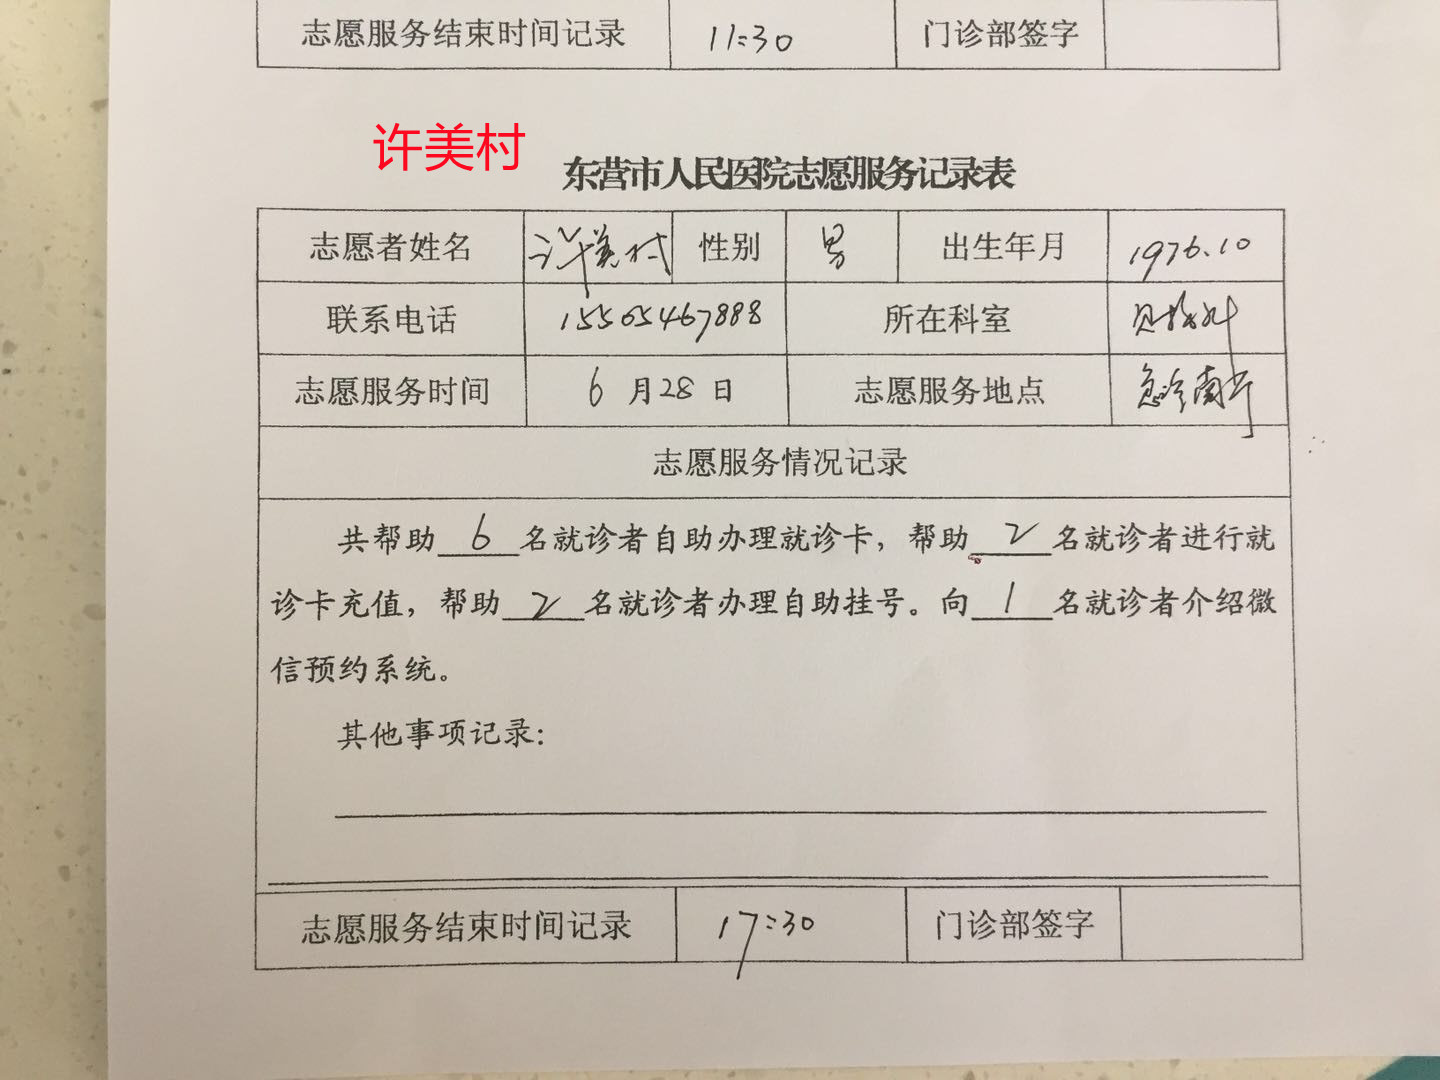 志愿服务结束时间记录 11:30 门诊部签字
许美村
东营市人民医院志愿服务记录表
志愿者姓名 许美村 性别 男 出生年月 1976.10
联系电话 15505467888 所在科室
志愿服务时间 6月28日 志愿服务地点 急诊南厅
志愿服务情况记录
共帮助6名就诊者自助办理就诊卡，帮助2名就诊者进行就
诊卡充值，帮助2名就诊者办理自助挂号。向1名就诊者介绍微
信预约系统。
其他事项记录：
志愿服务结束时间记录 17:30 门诊部签字